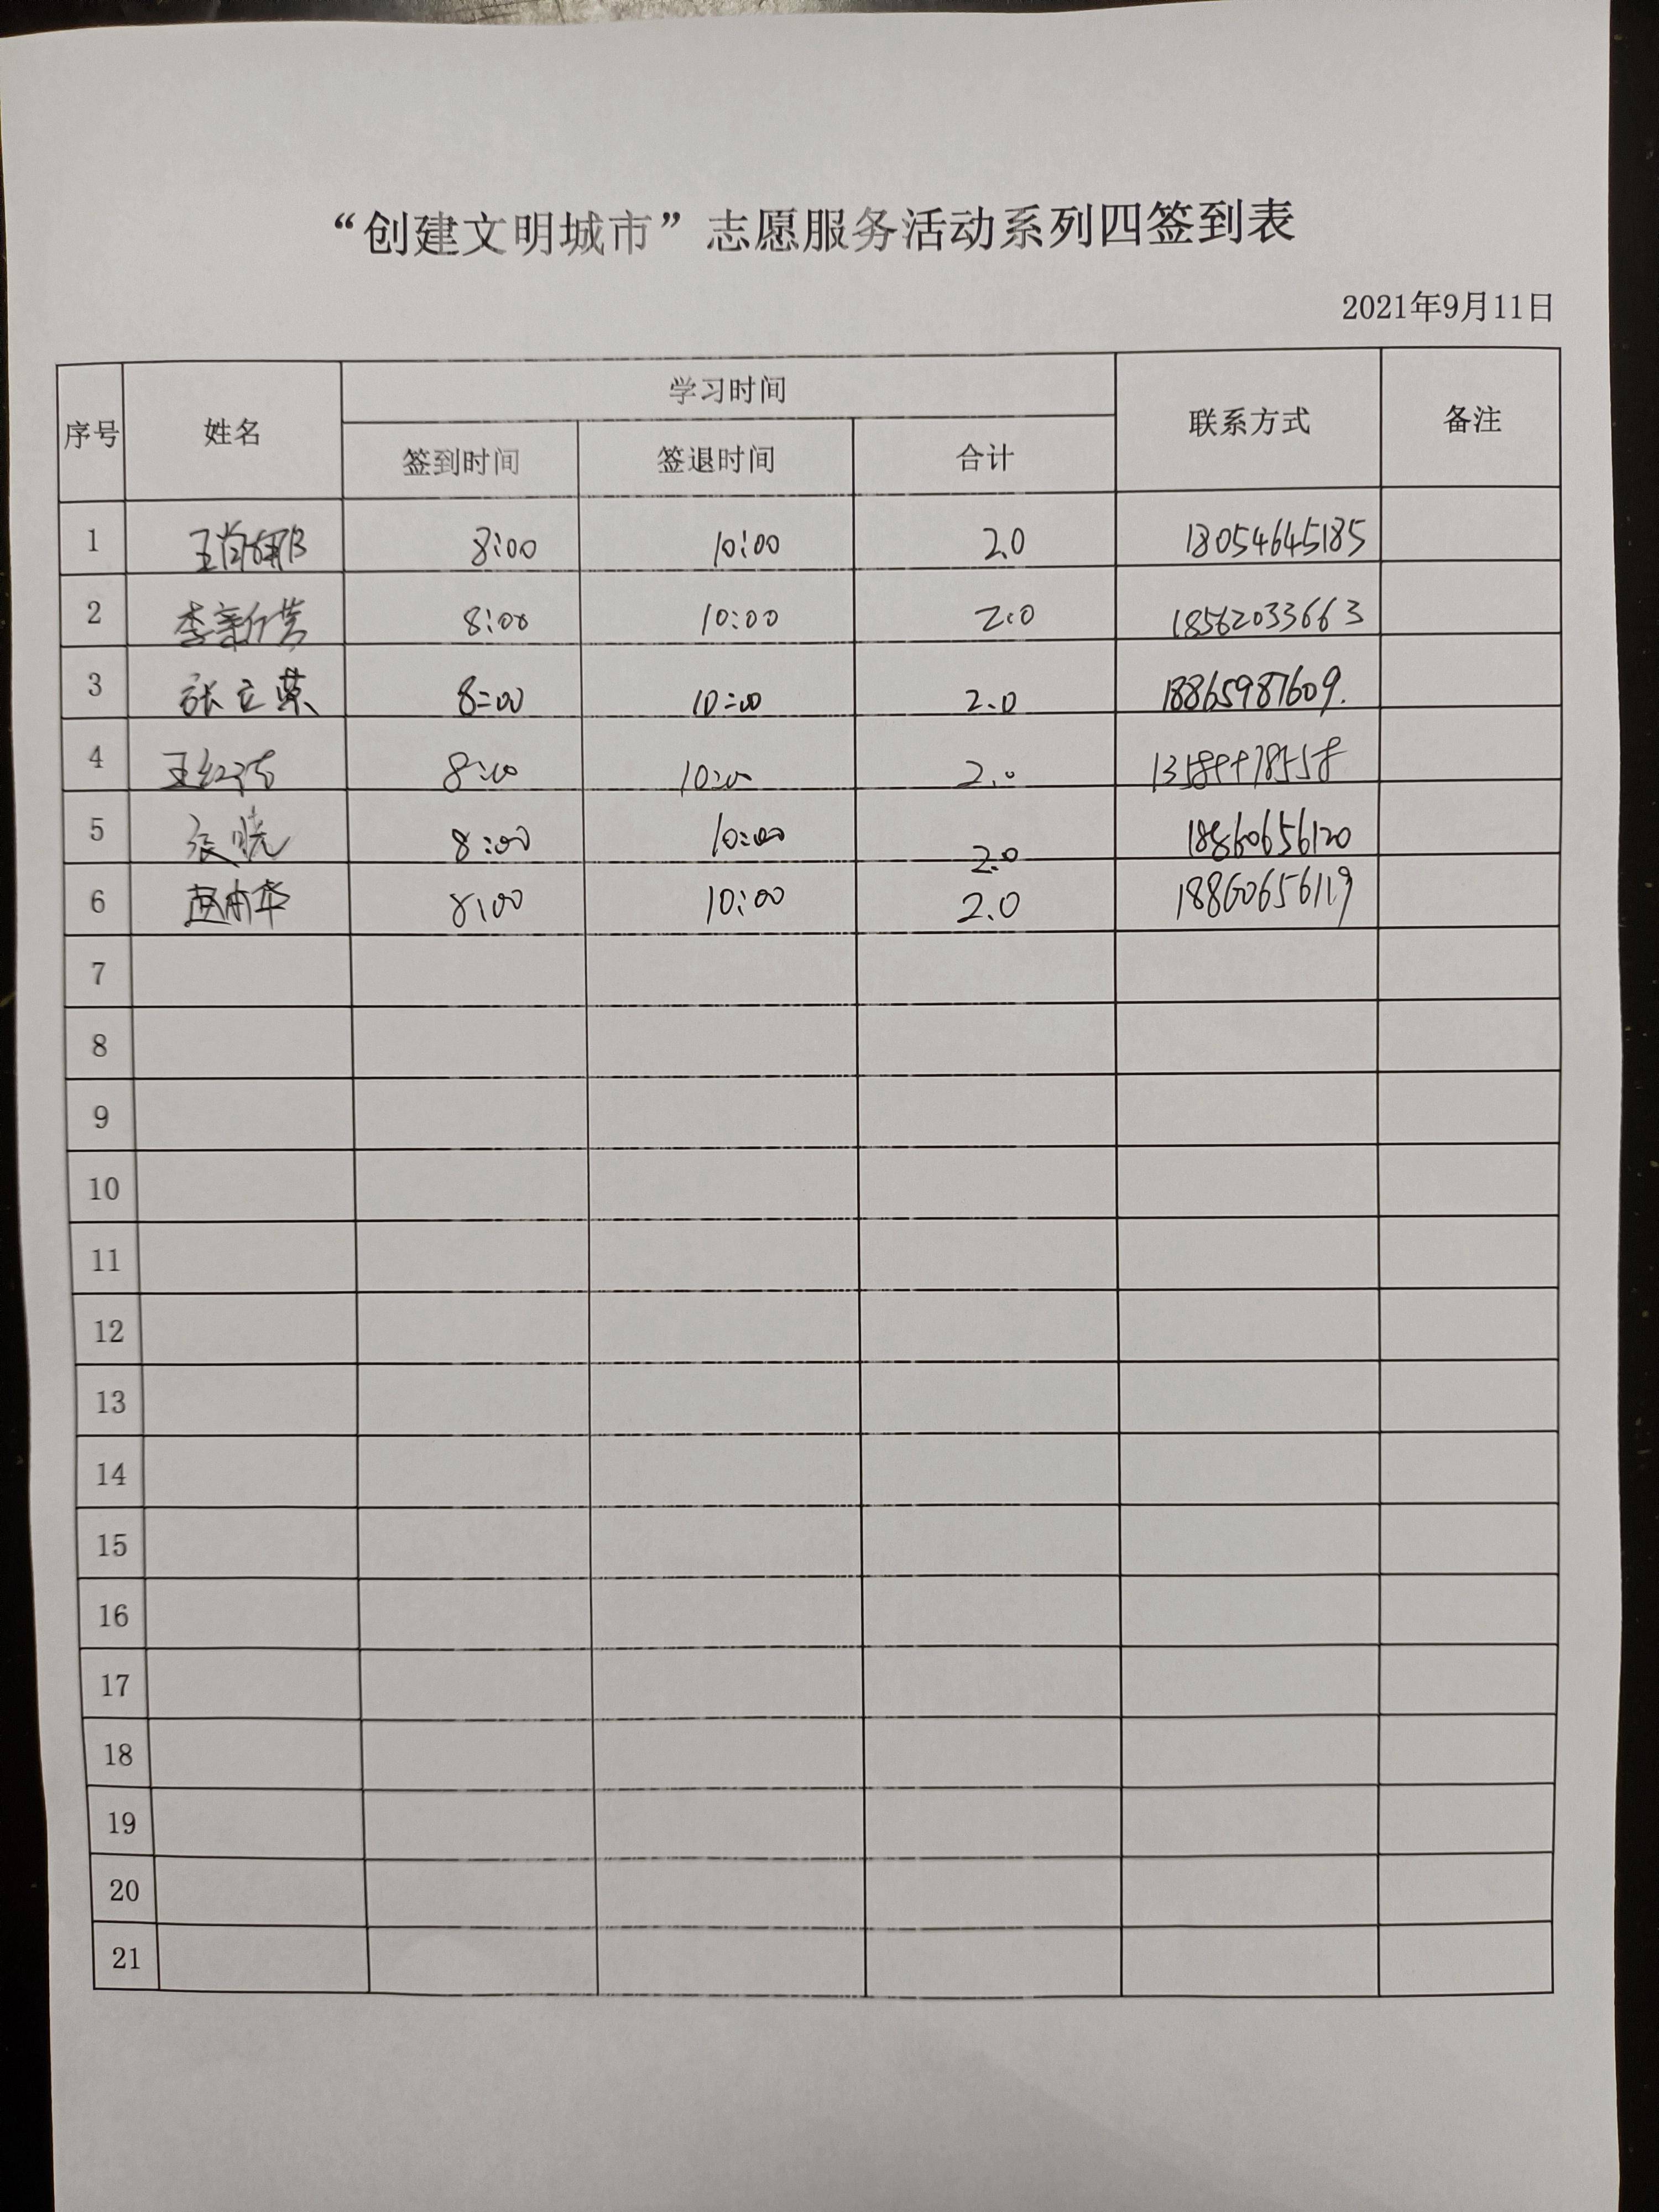 “创建文明城市”志愿服务活动系列四签到表
2021年9月11日
序号 姓名 学习时间 联系方式 备注
签到时间 签退时间 合计
1 王肖娜 8:00 10:00 2.0 18054645185
2 李新芳 8:00 10:00 2.0 18562033663
3 张立荣 8:00 10:00 2.0 18865987609.
4 8:00 10:00 2.0
5 张晓 8:00 10:00 2.0 18860656120
6 8:00 10:00 2.0 18860656119
7
8
9
10
11
12
13
14
15
16
17
18
19
20
21